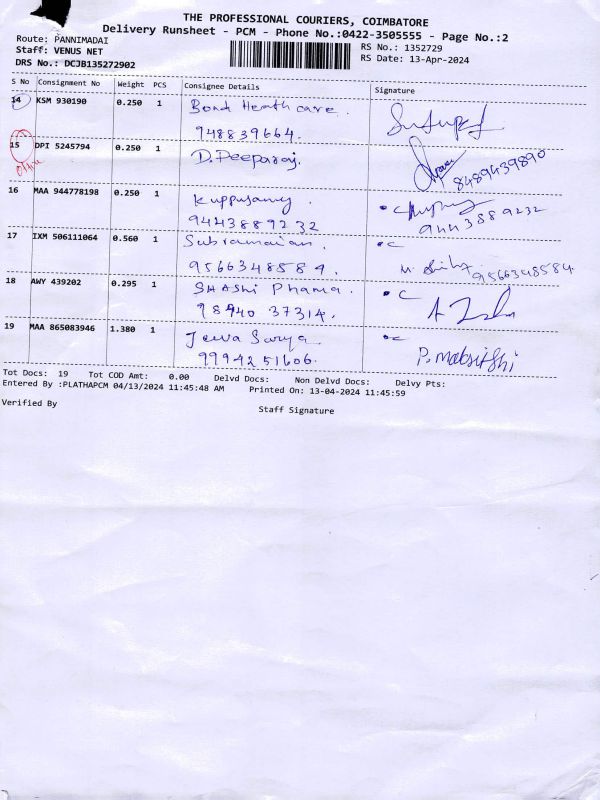 THE PROFESSIONAL COURIERS, COIMBATORE
Delivery Runsheet - PCM - Phone No.:0422-3505555 - Page No.:2
Route: PANNIMADAI
RS No.: 1352729
Staff: VENUS NET
RS Date: 13-Apr-2024
DRS No.: DCJB135272902
S No Consignment No Weight PCS Consignee Details Signature
14 KSM 930190 0.250 1 Bond Heath care.
948839664.
15 DPI 5245794 0.250 1 D. Deeparaj. 8489439890
office
16 MAA 944778198 0.250 1 Kuppusamy.
9443889232 9443889232
17 IXM 506111064 0.560 1 Subramaian.
9566348584. 9566348584.
18 AWY 439202 0.295 1 SHAShi Phama.
98940 37314.
19 MAA 865083946 1.380 1 Jeeva Surya
9994251606. P. mabsitshi
Tot Docs: 19 Tot COD Amt: 0.00 Delvd Docs: Non Delvd Docs: Delvy Pts:
Entered By :PLATHAPCM 04/13/2024 11:45:48 AM Printed On: 13-04-2024 11:45:59
Verified By
Staff Signature